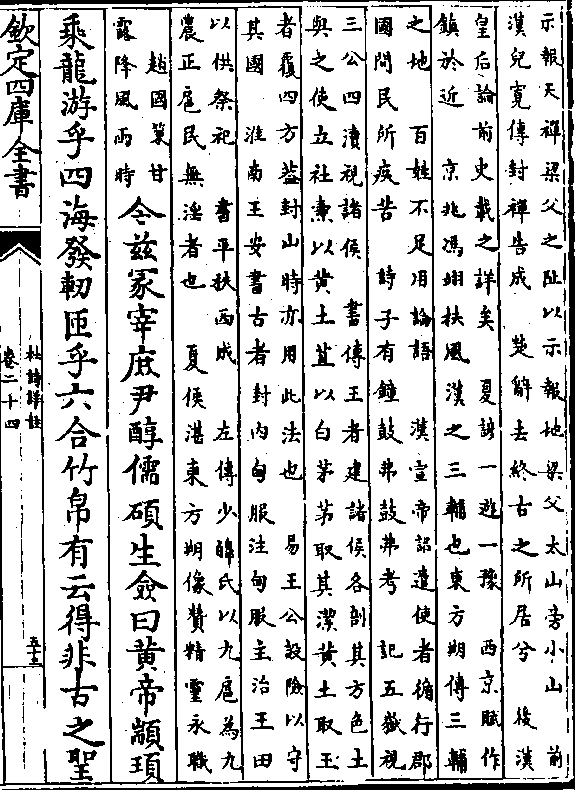 示報天禪梁父之阯以示報地梁父太山旁小山　前
漢兒寛傳封禪告成　楚辭去終古之所居兮　後漢
皇后論前史載之詳矣　夏諺一遊一豫　西京賦作
鎮於近　京兆馮翊扶風漢之三輔也東方朔傳三輔
之地　百姓不足用論語　漢宣帝詔遣使者循行郡
國問民所疾苦　詩子有鐘鼓弗鼓弗考　記五嶽視
三公四瀆視諸侯　書傳王者建諸侯各割其方色土
與之使立社燾以黄土苴以白茅茅取其潔黄土取王
者覆四方葢封山時亦用此法也　易王公設險以守
其國　淮南王安書古者封内甸服注甸服主治王田
以供祭祀　書平秩西成　左傳少皥氏以九扈為九
農正扈民無淫者也　夏侯湛東方朔像贊精靈永戢
趙國策甘
露降風雨時
今兹冢宰庶尹醇儒碩生僉曰黄帝顓頊
乘龍游乎四海發軔匝乎六合竹帛有云得非古之聖
欽定四庫全書
杜詩詳註
卷二十四
五十三